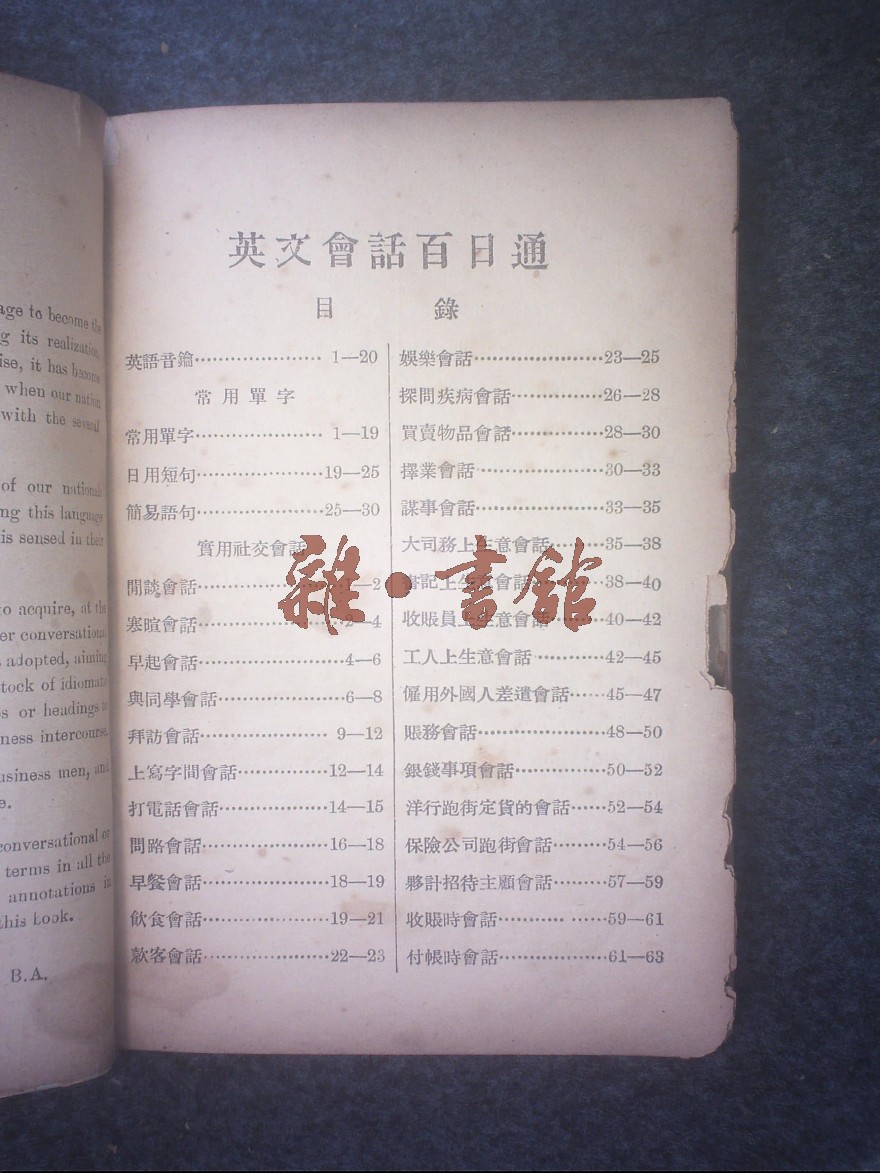 age to become the
g its realization,
ise, it has become
when our nation
with the several
of our nationals
ing this language
is sensed in their
to acquire, at the
er conversational
s adopted, aiming
tock of idiomatic
s or headings to
ness intercourse.
usiness men, and
e.
conversational or
terms in all the
annotations in
this book.
B.A.
英文會話百日通
目錄
英語音鑰 1—20
常用單字
常用單字 1—19
日用短句 19—25
簡易語句 25—30
實用社交會話
閒談會話 1—2
寒暄會話 2—4
早起會話 4—6
與同學會話 6—8
拜訪會話 9—12
上寫字間會話 12—14
打電話會話 14—15
問路會話 16—18
早餐會話 18—19
飲食會話 19—21
款客會話 22—23
娛樂會話 23—25
探問疾病會話 26—28
買賣物品會話 28—30
擇業會話 30—33
謀事會話 33—35
大司務上生意會話 35—38
書記上生意會話 38—40
收賬員上生意會話 40—42
工人上生意會話 42—45
僱用外國人差遣會話 45—47
賬務會話 48—50
銀錢事項會話 50—52
洋行跑街定貨的會話 52—54
保險公司跑街會話 54—56
夥計招待主顧會話 57—59
收賬時會話 59—61
付帳時會話 61—63
雜·書館